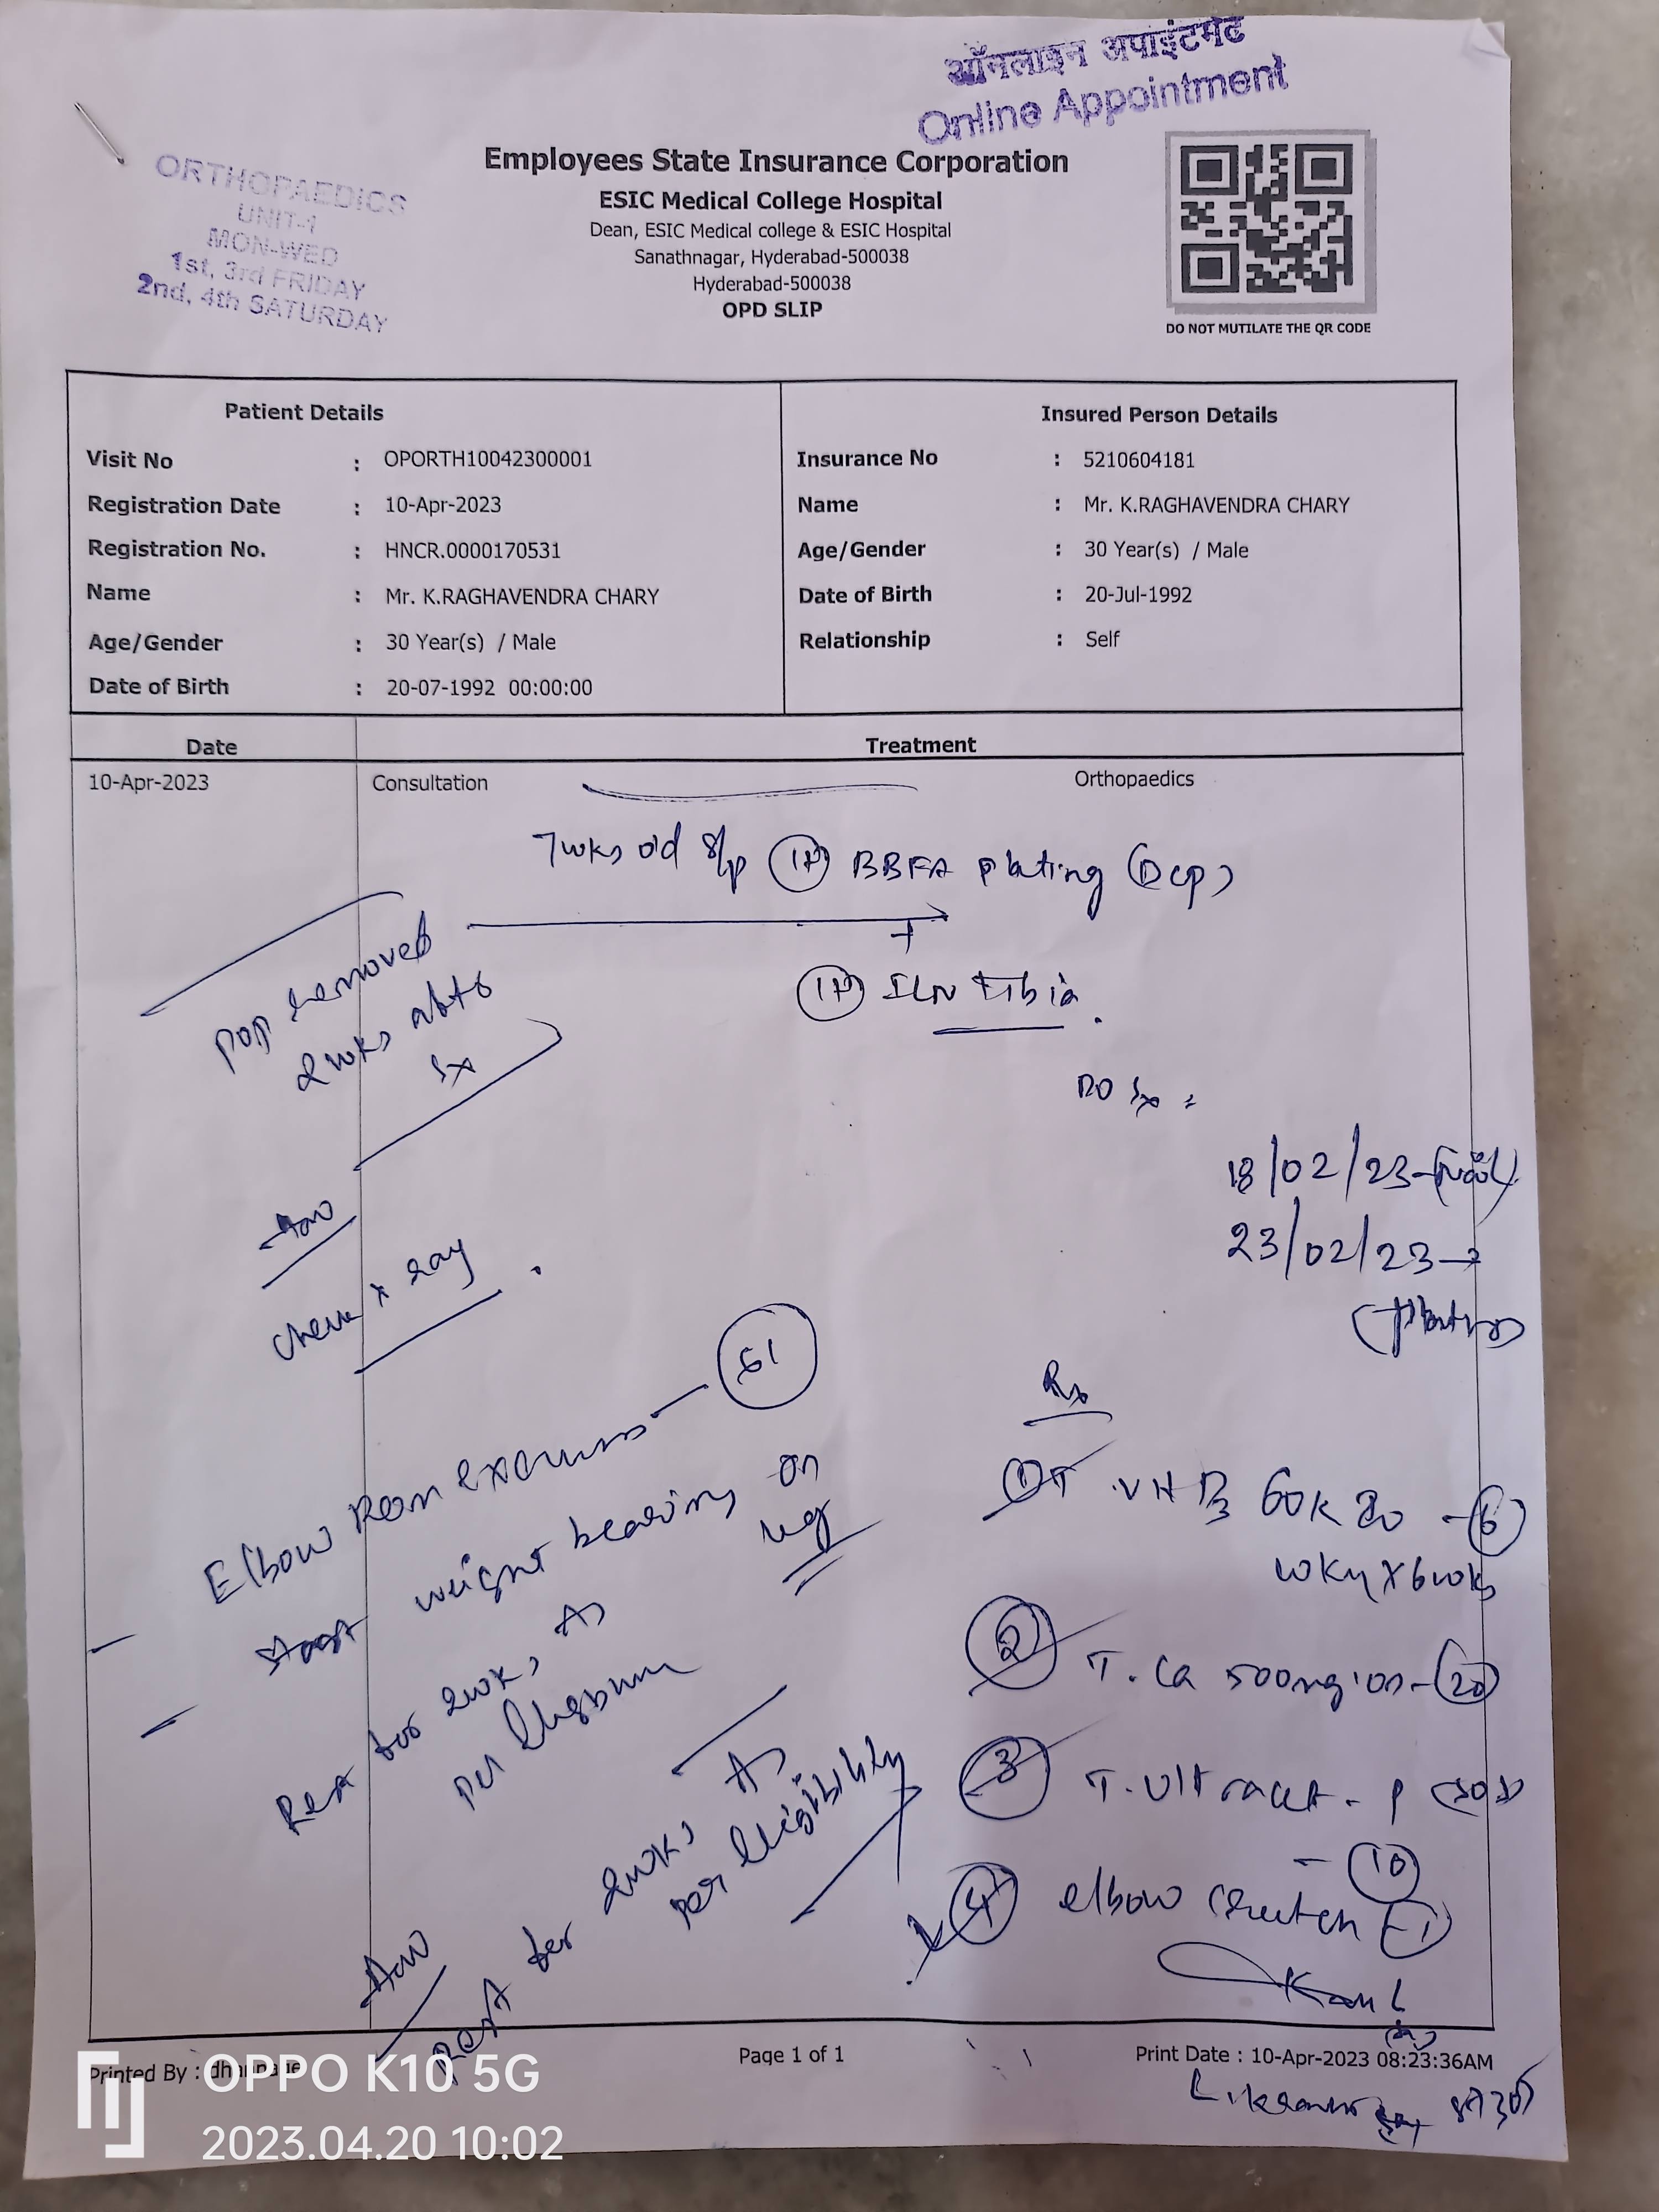 ऑनलाइन अपाइंटमेंट
Online Appointment
ORTHOPAEDICS
UNIT-1
MON-WED
1st, 3rd FRIDAY
2nd, 4th SATURDAY
Employees State Insurance Corporation
ESIC Medical College Hospital
Dean, ESIC Medical college & ESIC Hospital
Sanathnagar, Hyderabad-500038
Hyderabad-500038
OPD SLIP
DO NOT MUTILATE THE QR CODE
Patient Details
Visit No : OPORTH10042300001
Registration Date : 10-Apr-2023
Registration No. : HNCR.0000170531
Name : Mr. K.RAGHAVENDRA CHARY
Age/Gender : 30 Year(s) / Male
Date of Birth : 20-07-1992 00:00:00
Insured Person Details
Insurance No : 5210604181
Name : Mr. K.RAGHAVENDRA CHARY
Age/Gender : 30 Year(s) / Male
Date of Birth : 20-Jul-1992
Relationship : Self
Date Treatment
10-Apr-2023 Consultation Orthopaedics
7wks old S/p BBFA Plating (DCP)
+
ILN Tibia.
POP removed
2wks
Sx
DO Sx =
18/02/23
23/02/23 →
x ray
Elbow ROM
weight bearing on
Rest for 2wks As
per
Adv
Rest for 2wks As
per eligibility
Rx
① T. Vit D3 60K - ⑥
wkly x 6wks
② T. Ca 500mg - ⑳
③ T. Ultracet - ⑩
④ elbow crutch
Printed By :
Page 1 of 1
Print Date : 10-Apr-2023 08:23:36AM
OPPO K10 5G
2023.04.20 10:02